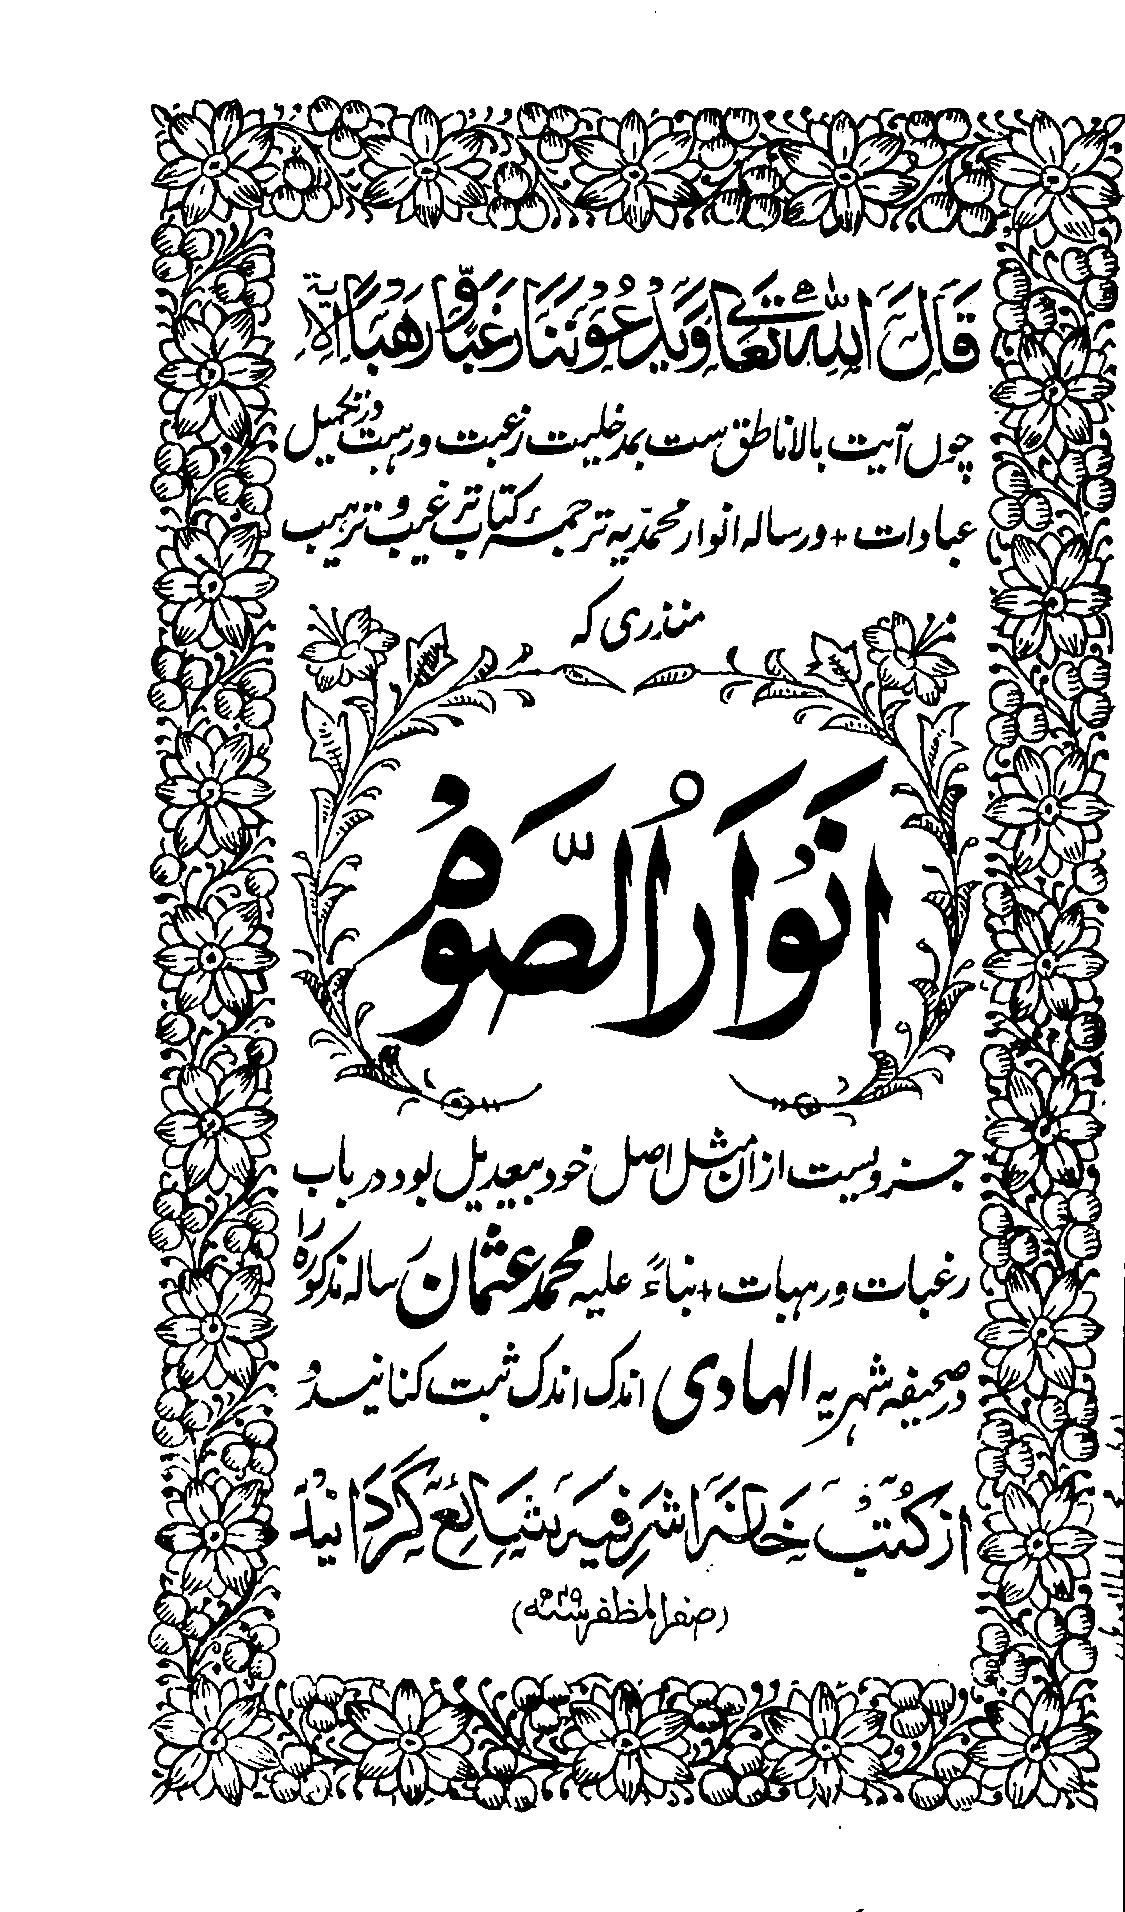 قَالَ اللّٰہُ تَعَالٰی وَیَدْعُوْنَنَا رَغَبًا وَّرَهَبًا الآیۃ
چوں آیت بالا ناطق ست بمدخلیت رغبت و رہبت در تکمیل
عبادات + و رسالہ انوار محمدیہ ترجمۂ کتاب ترغیب و ترہیب
منذری کہ
اَنْوَارُ الصَّوْم
جزویست ازان مثل اصل خود بیعدیل بود در باب
رغبات و رہبات + بناءً علیہ محمد عثمان رسالہ مذکورہ را
در صحیفہ شہریہ الہادی اندک اندک ثبت کنانیدہ
از کُتُب خَانَہ اَشْرَفِیَہ شَائع گَردَانِید
(صفر المظفر)